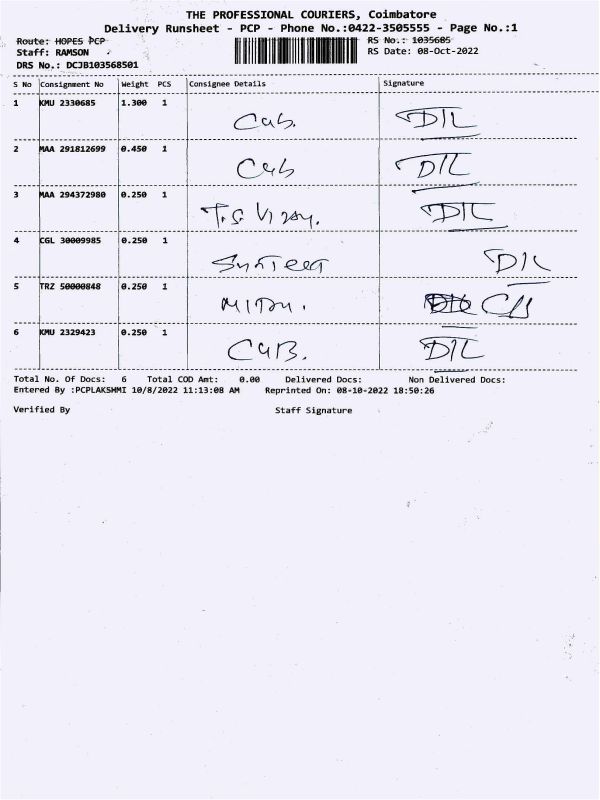 THE PROFESSIONAL COURIERS, Coimbatore
Delivery Runsheet - PCP - Phone No.:0422-3505555 - Page No.:1
Route: HOPES PCP RS No.: 1035685
Staff: RAMSON RS Date: 08-Oct-2022
DRS No.: DCJB103568501
S No Consignment No Weight PCS Consignee Details Signature
1 KMU 2330685 1.300 1 Cub. D/L
2 MAA 291812699 0.450 1 Cub D/L
3 MAA 294372980 0.250 1 T.S. Vijay. D/L
4 CGL 30009985 0.250 1 D/L
5 TRZ 50000848 0.250 1
6 KMU 2329423 0.250 1 CUB. D/L
Total No. Of Docs: 6 Total COD Amt: 0.00 Delivered Docs: Non Delivered Docs:
Entered By :PCPLAKSHMI 10/8/2022 11:13:08 AM Reprinted On: 08-10-2022 18:50:26
Verified By Staff Signature